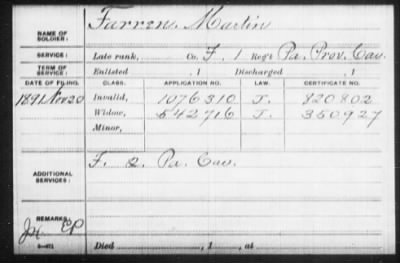 Farren, Martin
NAME OF SOLDIER:
SERVICE: Late rank, Co. F, 1 Reg't Pa. Prov. Cav.
TERM OF SERVICE: Enlisted , 1 Discharged , 1
DATE OF FILING. CLASS. APPLICATION NO. LAW. CERTIFICATE NO.
1891 Nov 20 Invalid, 1076310 J. 820802
Widow, 542716 J. 350927
Minor,
F. 2 Pa. Cav.
ADDITIONAL SERVICES:
REMARKS:
EP
Died , 1 , at